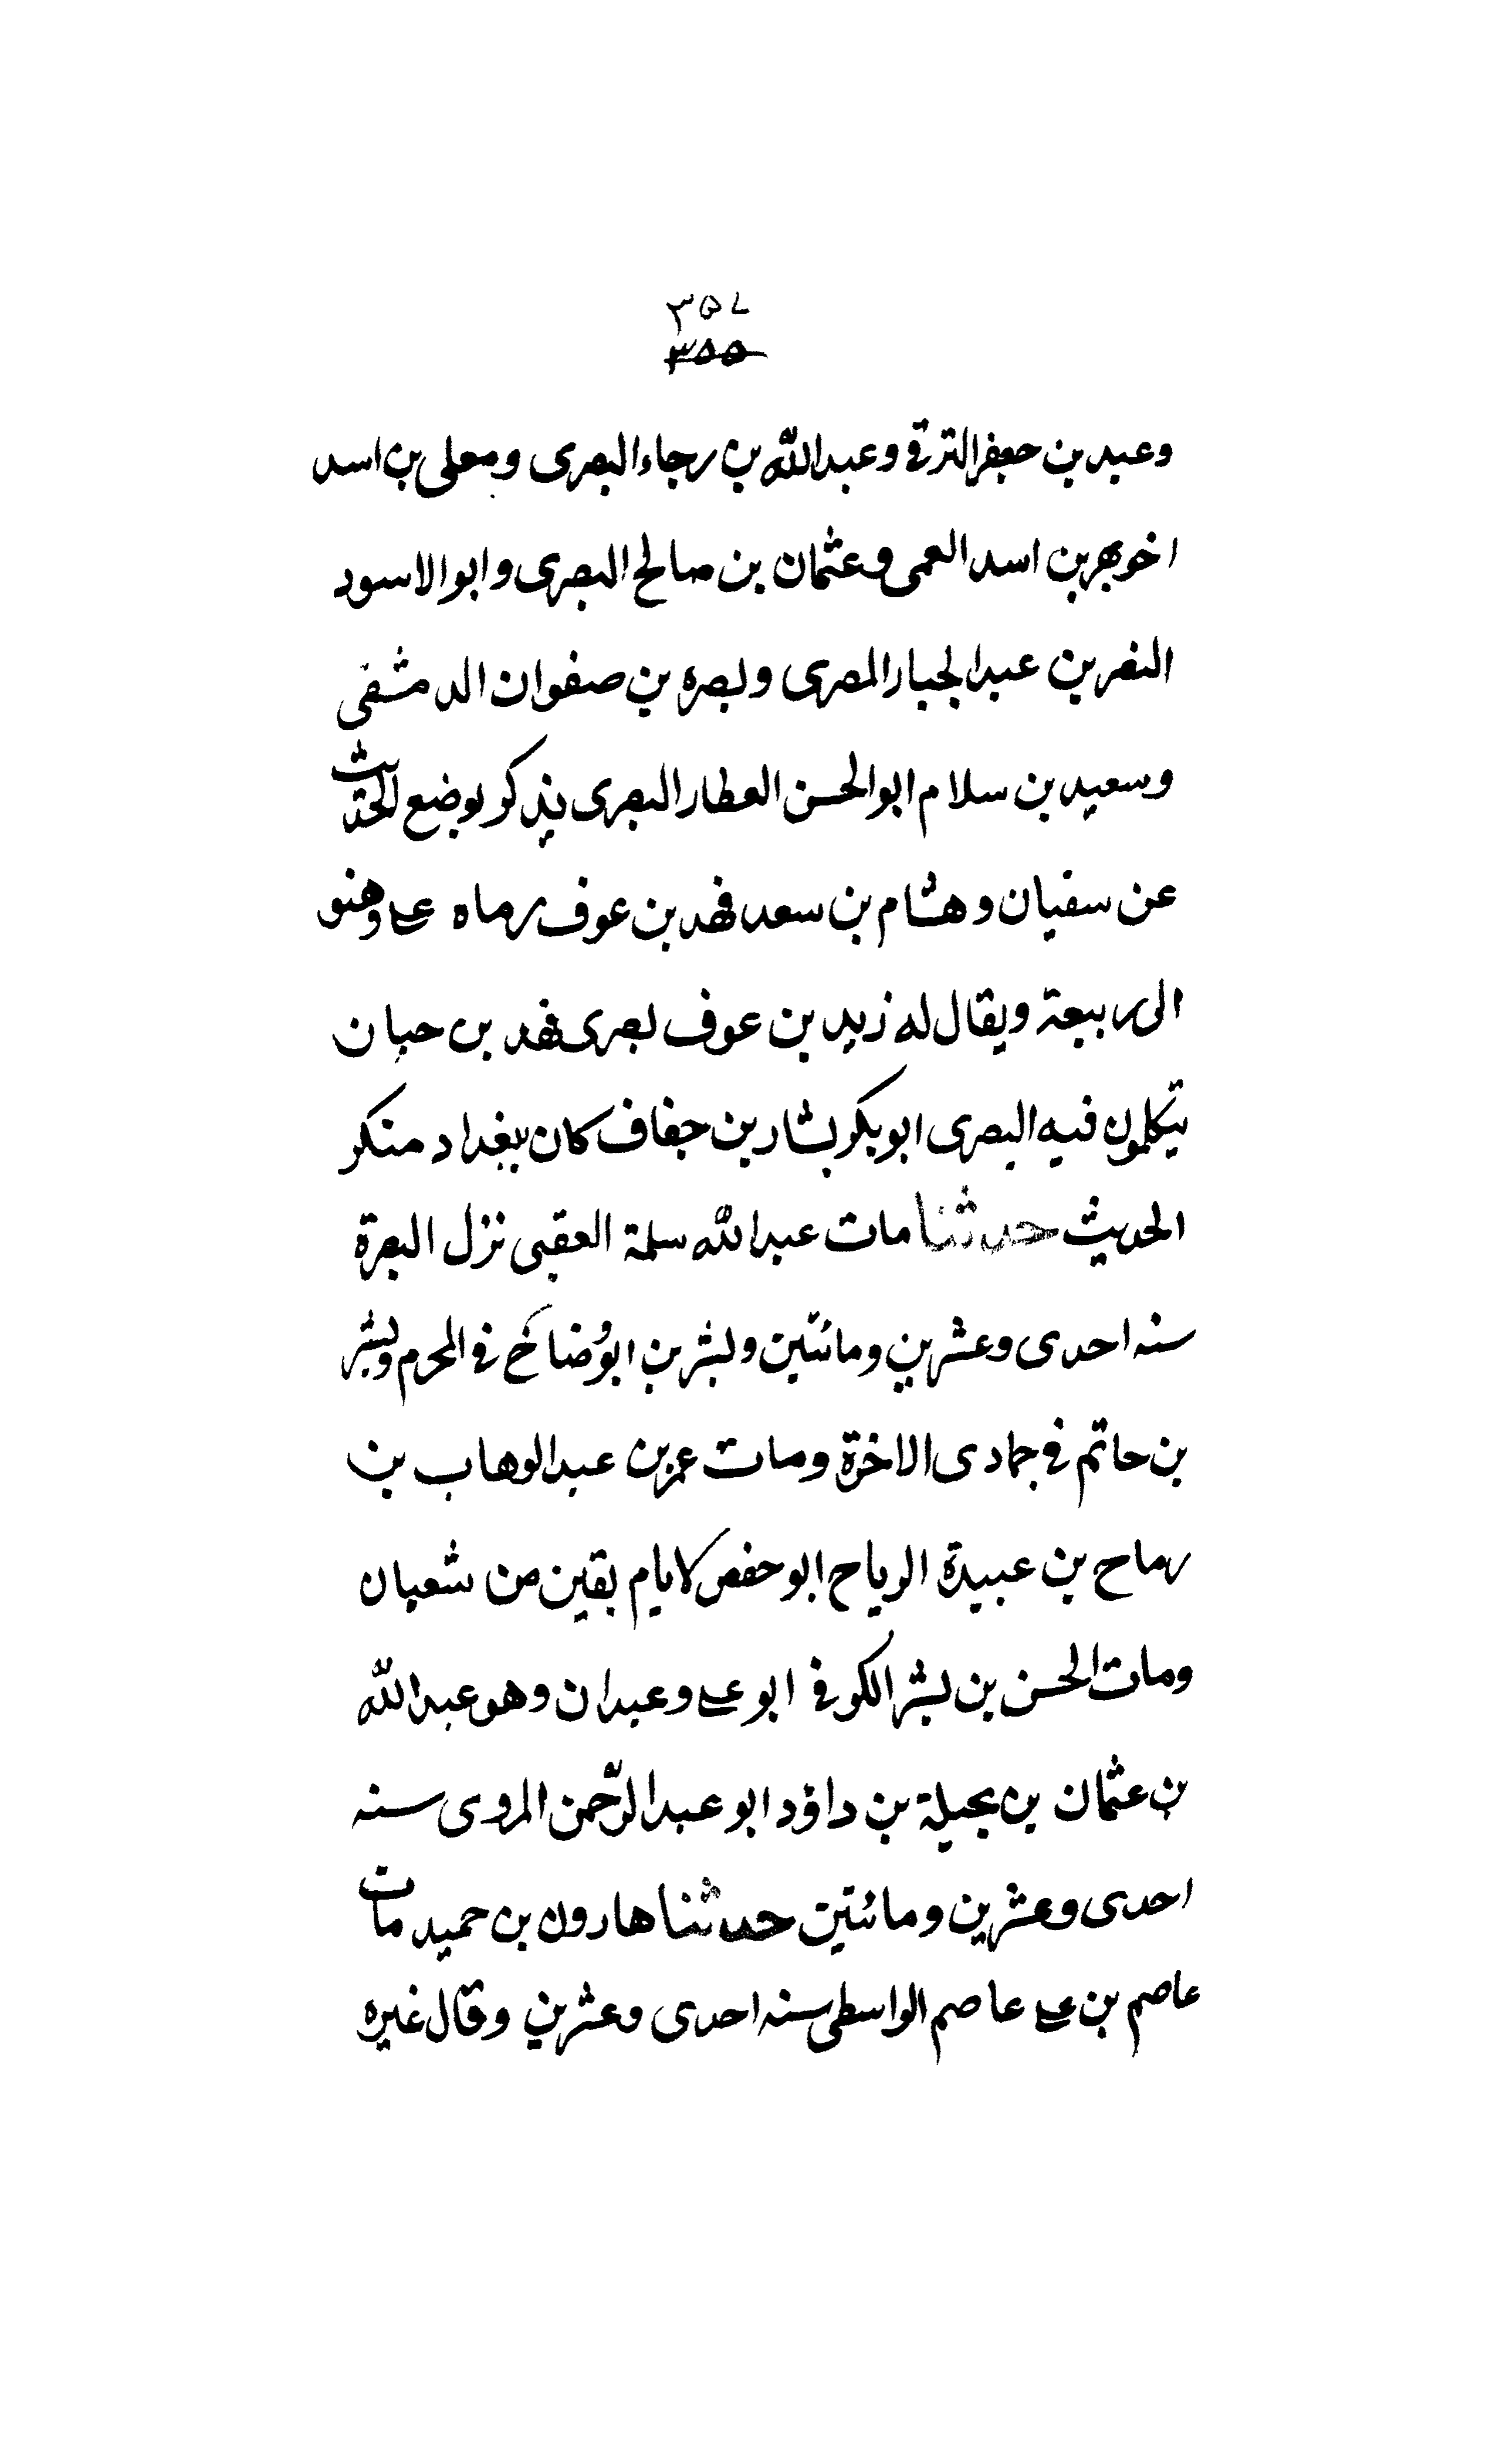 ٣٥٧
٣٥٥
وعبد بن جعفر الترقي وعبد الله بن رجاء البصرى ومعلى بن اسد
اخو بهز بن اسد العمى وعثمان بن صالح البصرى وابو الاسود
النضر بن عبد الجبار المصرى وبصره بن صفوان الدمشقى
وسعيد بن سلام ابو الحسن العطار البصرى يذكر بوضع الحديث
عن سفيان وهشام بن سعد فهد بن عوف رماه على وهنو
الى ربيعة ويقال له زيد بن عوف بصرى فهد بن حبان
يتكلمون فيه البصرى ابو بكر بشار بن جفاف كان ببغداد منكر
الحديث حدثنا مات عبد الله سلمة العقبى نزل البصرة
سنه احدى وعشرين ومائتين وبشر بن ابو وُضاخ في المحرم وبشر
بن حاتم في جمادى الاخرة ومات عمر بن عبد الوهاب بن
رماح بن عبيدة الرياح ابو حفص لايام بقين من شعبان
ومات الحسن بن بشر الكوفي ابو على وعبدان وهو عبد الله
بن عثمان بن بجيلة بن داؤد ابو عبد الرّحمن المروى سنه
احدى وعشرين ومائتين حدثنا هارون بن حميد مات
عاصم بن على عاصم الواسطى سنه احدى وعشرين وقال غيره